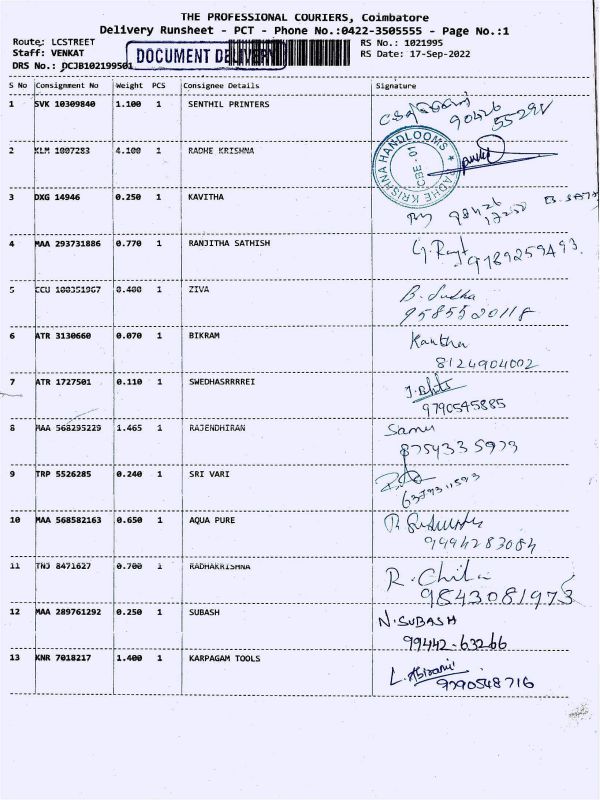 THE PROFESSIONAL COURIERS, Coimbatore
Delivery Runsheet - PCT - Phone No.:0422-3505555 - Page No.:1
Route: LCSTREET RS No.: 1021995
Staff: VENKAT DOCUMENT DELIVERY RS Date: 17-Sep-2022
DRS No.: DCJB102199501
S No Consignment No Weight PCS Consignee Details Signature
1 SVK 10309840 1.100 1 SENTHIL PRINTERS
90426
2 KLM 1007283 4.100 1 RADHE KRISHNA RADHE KRISHNA HANDLOOMS CBE -01
3 DXG 14946 0.250 1 KAVITHA 98426
4 MAA 293731886 0.770 1 RANJITHA SATHISH
9789259493
5 CCU 100351967 0.400 1 ZIVA B. Sudha
9585520118
6 ATR 3130660 0.070 1 BIKRAM Kantha
8124904002
7 ATR 1727501 0.110 1 SWEDHASRRRREI
9790545885
8 MAA 568295229 1.465 1 RAJENDHIRAN
8754335973
9 TRP 5526285 0.240 1 SRI VARI
10 MAA 568582163 0.650 1 AQUA PURE
9994283084
11 TNJ 8471627 0.700 1 RADHAKRISHNA R. Chitra
9843081973
12 MAA 289761292 0.250 1 SUBASH N. SUBASH
99442-63266
13 KNR 7018217 1.400 1 KARPAGAM TOOLS L. Abirami
9790548716